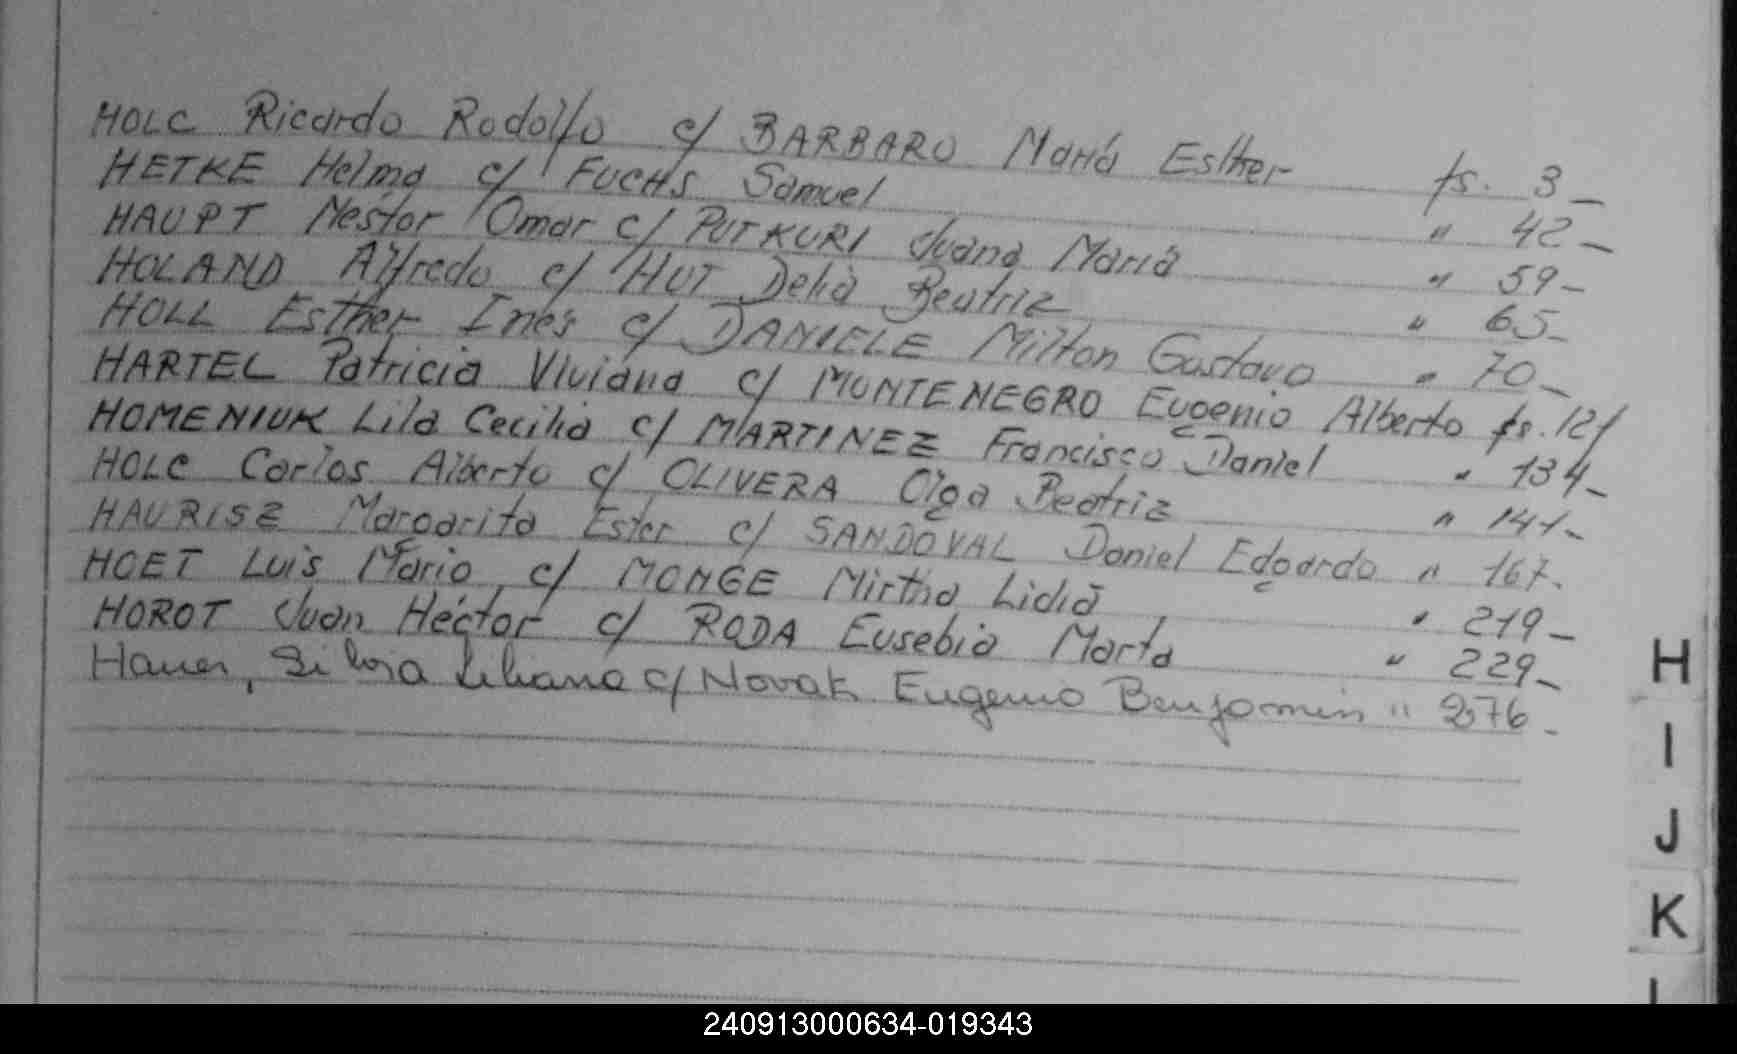 HOLC Ricardo Rodolfo c/ BARBARO María Esther fs. 3_
HETKE Helma c/ FUCHS Samuel " 42_
HAUPT Nestor Omar c/ PUTKURI Juana María " 59_
HOLAND Alfredo c/ HUT Delia Beatriz " 65_
HOLL Esther Inés c/ DANIELE Milton Gustavo " 70_
HARTEL Patricia Viviana c/ MONTENEGRO Eugenio Alberto fs. 121
HOMENIUK Lila Cecilia c/ MARTINEZ Francisco Daniel " 134_
HOLC Carlos Alberto c/ OLIVERA Olga Beatriz " 141_
HAURISZ Margarita Ester c/ SANDOVAL Daniel Edgardo " 167.
HOET Luis Mario c/ MONGE Mirtha Lidia " 219_
HOROT Juan Héctor c/ RODA Eusebia Marta " 229_
Hauer, Silvia Liliana c/ Novak Eugenio Benjamin " 276_
H
I
J
K
240913000634-019343